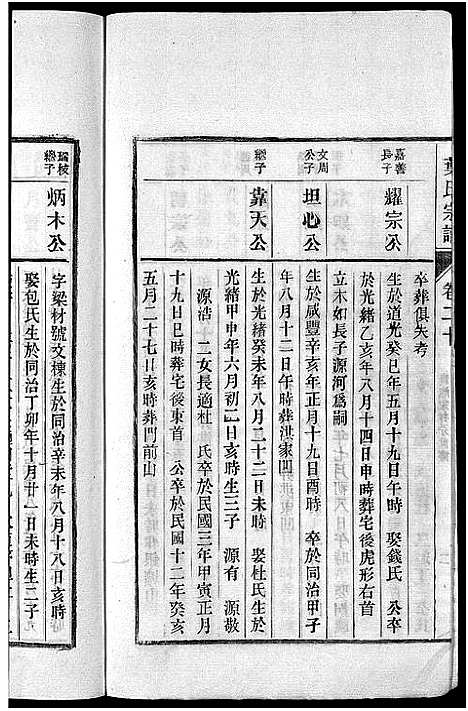 葉氏宗譜
卷二十
卒葬俱失考
嘉善長子
耀宗公
生於道光癸巳年五月十九日午時 娶錢氏 公卒
於光緒乙亥年八月十四日申時葬宅後虎形右首
立木如長子源河爲嗣
文周公子
坦心公
生於咸豐辛亥年正月十九日酉時 卒於同治甲子
年八月十二日午時葬洪家四
繼子
靠天公
生於光緒癸未年八月二十二日未時 娶杜氏生於
光緒甲申年六月初二日亥時生三子 源有 源敬
源浩 二女長適杜 氏卒於民國三年甲寅正月
十九日巳時葬宅後東首 公卒於民國十二年癸亥
五月二十七日亥時葬門前山
繼子
炳木公
字梁材號文棟生於同治辛未年八月十八日亥時
娶包氏生於同治丁卯年十月廿一日未時生二子